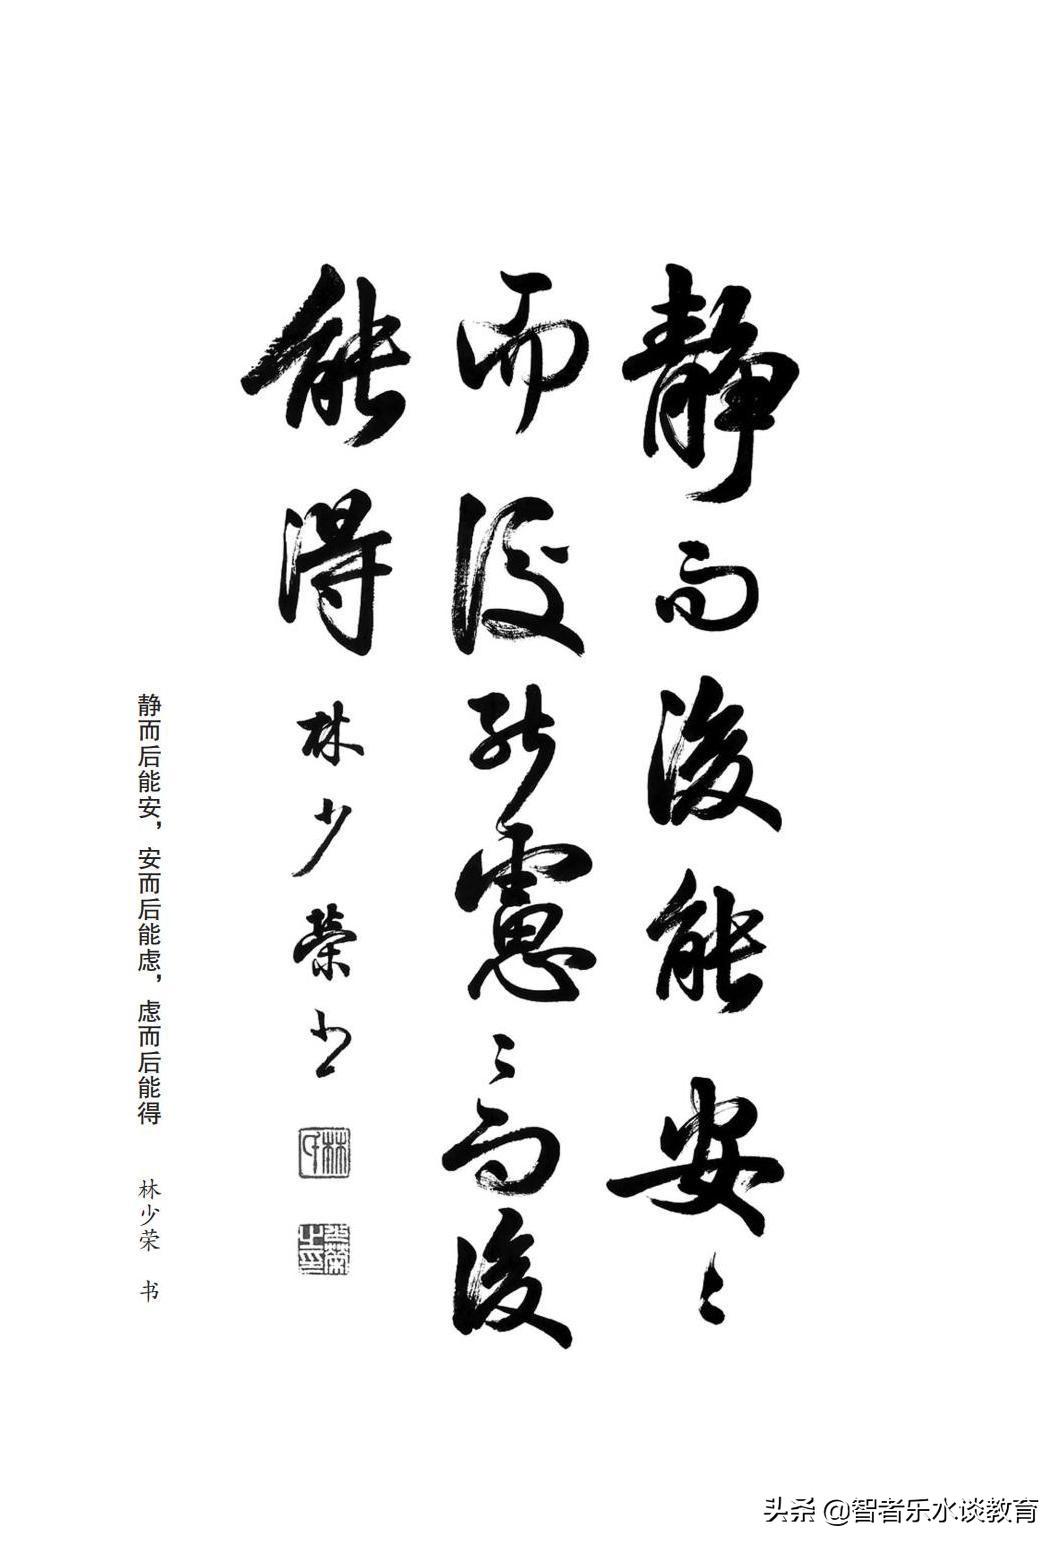 静而後能安〻
而後能慮〻而後
能得
林少榮书
林氏
静而后能安，安而后能虑，虑而后能得 林少荣 书
头条 @智者乐水谈教育